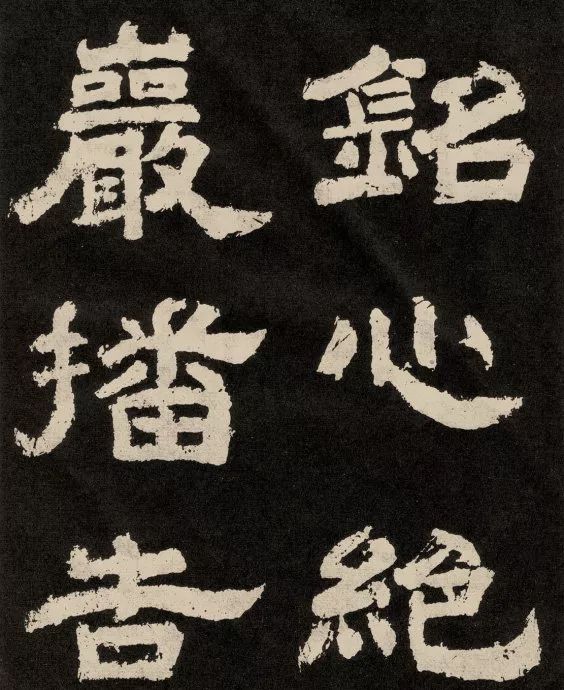 銘心絕
巖播告